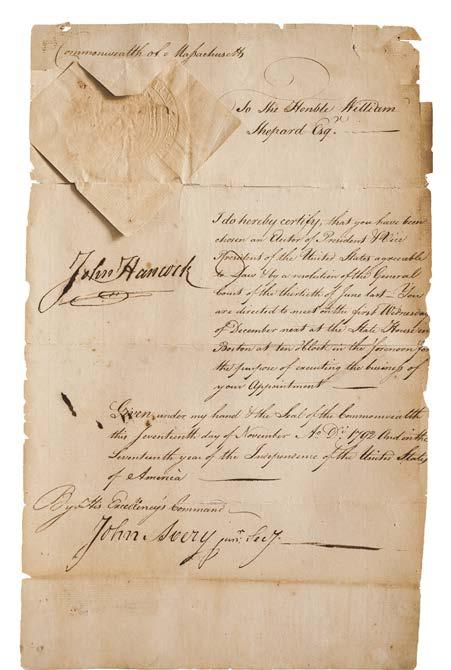 Commonwealth of Massachusetts
To the Honble William
Shepard Esqr
I do hereby certify, that you have been
chosen an Elector of President & Vice
President of the United States agreeable
to Law & by a resolution of the General
Court of the thirtieth of June last — You
are directed to meet on the first Wednesday
of December next at the State House in
Boston at ten oClock in the forenoon for
the purpose of executing the business of
your Appointment
John Hancock
Given under my hand & the Seal of the Commonwealth
this Seventeenth day of November Ao Di: 1792 And in the
Seventeenth year of the Independence of the United States
of America
By His Excellency's Command
John Avery junr Secy